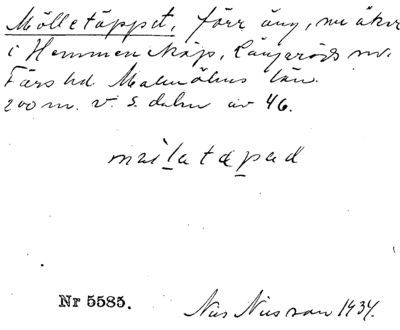 Mölletäppet, förr äng, nu åker
i Hemmeneköp, Långaröds sn.
Färs hd. Malmöhus län.
200 m. v. s. delen av 46.
Nr 5585. Nils Nilsson 1934.